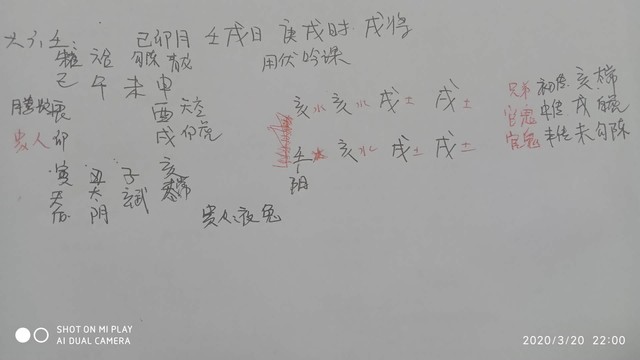 大六壬: 己卯月 壬戌日 庚戌时 戌将
朱雀 六合 勾陈 青龙 用伏吟课
巳 午 未 申
螣蛇 辰 酉 天空
贵人 卯 戌 白虎
亥水 亥水 戌土 戌土
壬水 亥水 戌土 戌土
阳
兄弟 初传 亥 太常
官鬼 中传 戌 白虎
官鬼 末传 未 勾陈
寅 丑 子 亥
天后 太阴 玄武 太常
贵人:夜兔
SHOT ON MI PLAY
AI DUAL CAMERA
2020/3/20 22:00